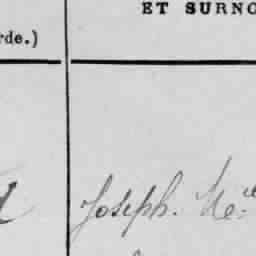 ET SURNO
rde.)
Joseph.